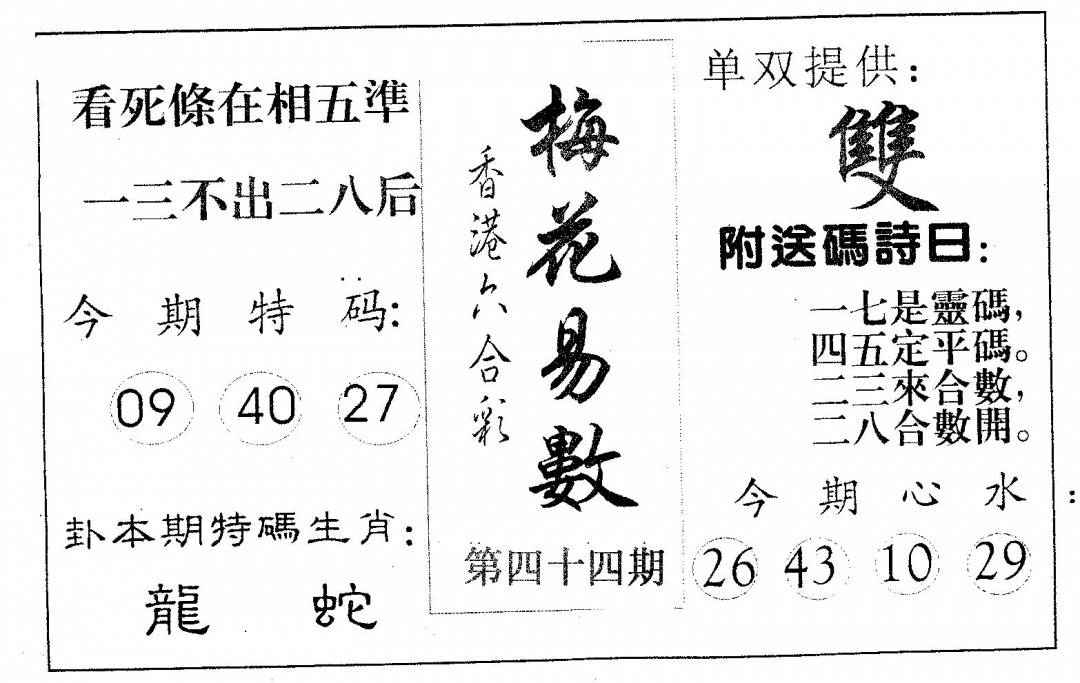 看死條在相五準
一三不出二八后
今期特码:
09 40 27
卦本期特碼生肖:
龍 蛇
梅花易數
香港六合彩
第四十四期
单双提供:
雙
附送碼詩曰:
一七是靈碼,
四五定平碼。
二三來合數,
二八合數開。
今期心水:
26 43 10 29